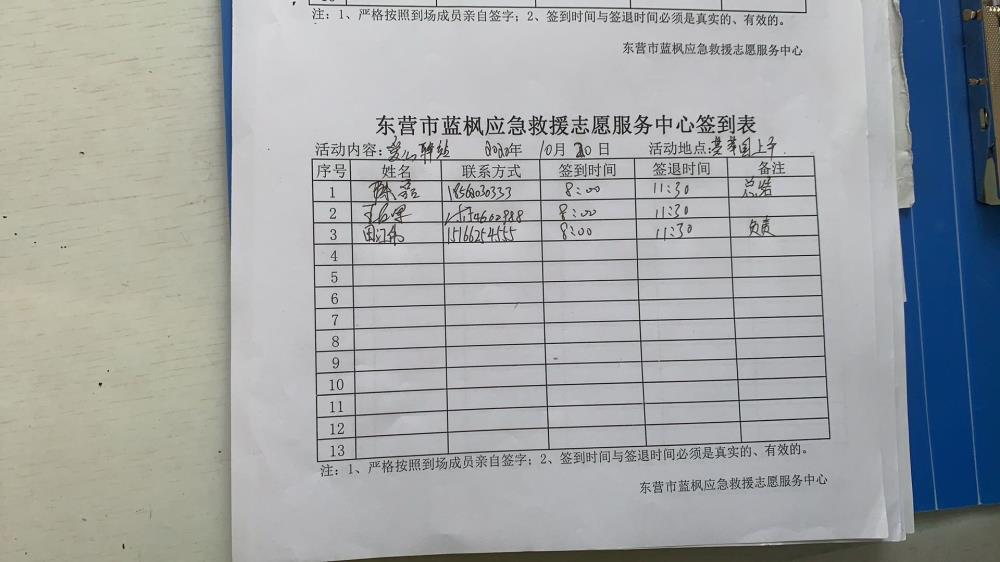 注：1、严格按照到场成员亲自签字；2、签到时间与签退时间必须是真实的、有效的。
东营市蓝枫应急救援志愿服务中心
东营市蓝枫应急救援志愿服务中心签到表
活动内容：爱心驿站 2020年 10月 20日 活动地点：
序号 姓名 联系方式 签到时间 签退时间 备注
1 8:00 11:30 总结
2 8:00 11:30
3 15166254555 8:00 11:30 负责
4
5
6
7
8
9
10
11
12
13
注：1、严格按照到场成员亲自签字；2、签到时间与签退时间必须是真实的、有效的。
东营市蓝枫应急救援志愿服务中心